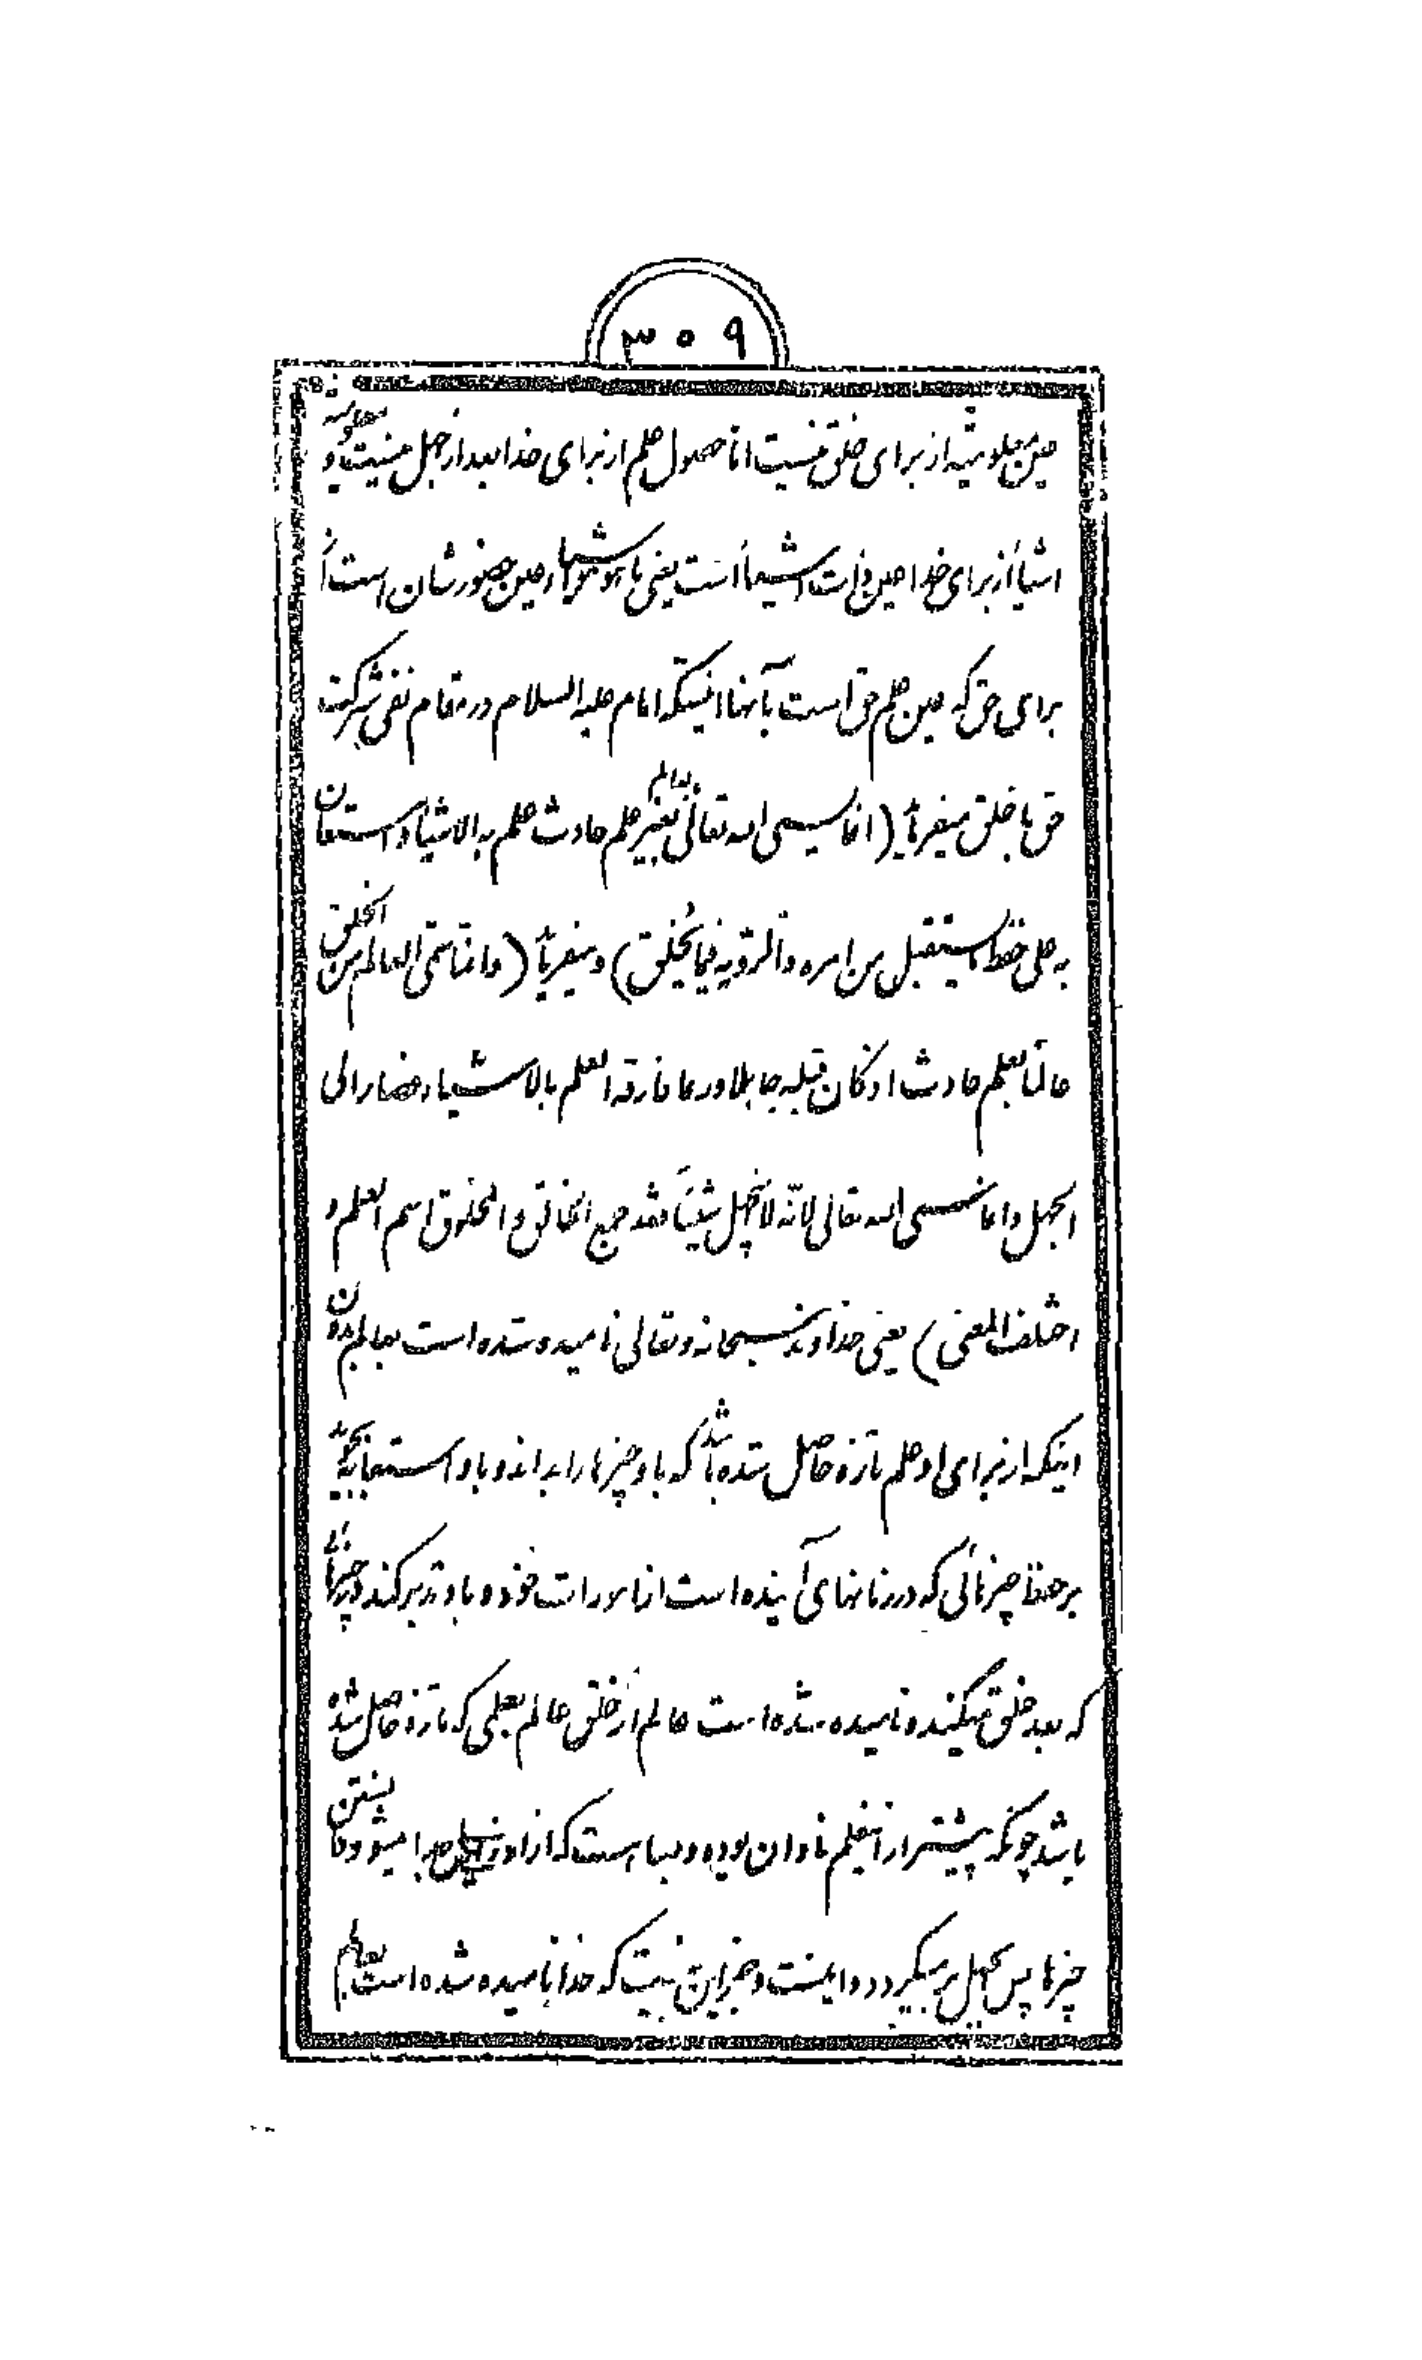 ۳۰۹
عین معلومیة از برای خلق نیست اما حصول علم از برای خدا بعد از جهل نیست و معلومیه
اشیاء از برای خدا عین ذات اشیاء است یعنی ماهو هویتها و عین حضورشان است از
برای حق که عین علم حق است بآنها اینستکه امام علیه السلام در مقام نفی شرکت
حق با خلق میفرماید (انما سمی الله تعالی بالعالم بغیر علم حادث علم به الاشیاء و استعان
به علی حفظ ما یستقبل من امره والرویه فیما یخلق) و میفرماید (و انما سمی العالم من الخلق
عالما لعلم حادث اذ کان قبله جاهلا و ربما فارقه العلم بالاشیاء فصار الی
الجهل و انما سمی الله تعالی لانه لا یجهل شیئاً فقد جمع الخالق و المخلوق اسم العلم و
اختلف المعنی) یعنی خداوند سبحانه و تعالی نامیده شده است بعالم بدون
اینکه از برای او علم تازه حاصل شده باشد که باو چیزها را بداند و باو استعانه بجوید
بر حفظ چیزهائی که در زمانهای آینده است از امورات خود و باو تدبر کند در چیزهائی
که بعد خلق میکند و نامیده شده است عالم از خلق عالم بعلمی که تازه حاصل شده
باشد چونکه پیشتر از اینعلم نادان بوده و بسا است که از او جدا میشود دانستن
چیزها پس بجهل بر میگردد و اینست و جز این نیست که خدا نامیده شده است بعالم